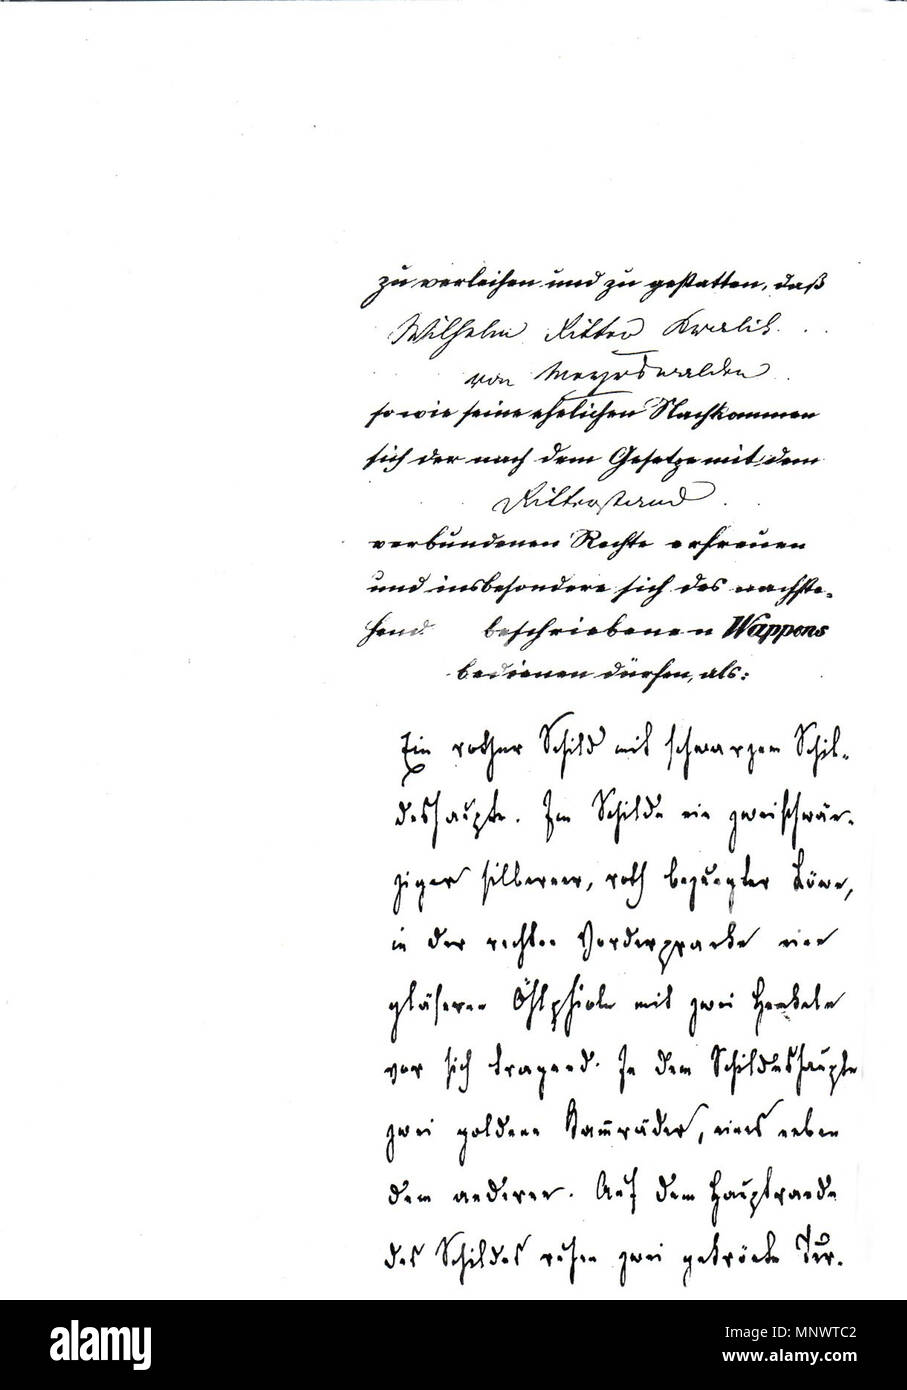 zu verleihen und zu gestatten, daß
Wilhelm Ritter Kralik
von Meyrswalden
sowie seine ehelichen Nachkommen
sich der nach dem Gesetze mit dem
Ritterstand
verbundenen Rechte erfreuen
und insbesondere sich des nachste-
hend beschriebenen Wappens
bedienen dürfen, als:
Ein rother Schild mit schwarzem Schil-
deshaupte. Im Schilde ein zweischwän-
ziger silberner, roth bezungter Löwe,
in der rechten Vorderpranke eine
gläserne Öhlphiole mit zwei Henkeln
vor sich tragend. In dem Schildeshaupte
zwei goldene Kam̅räder, eines neben
dem anderen. Auf dem Hauptrande
des Schildes ruhen zwei gekrönte Tur-
a alamy stock photo
alamy
Image ID: MNWTC2
www.alamy.com